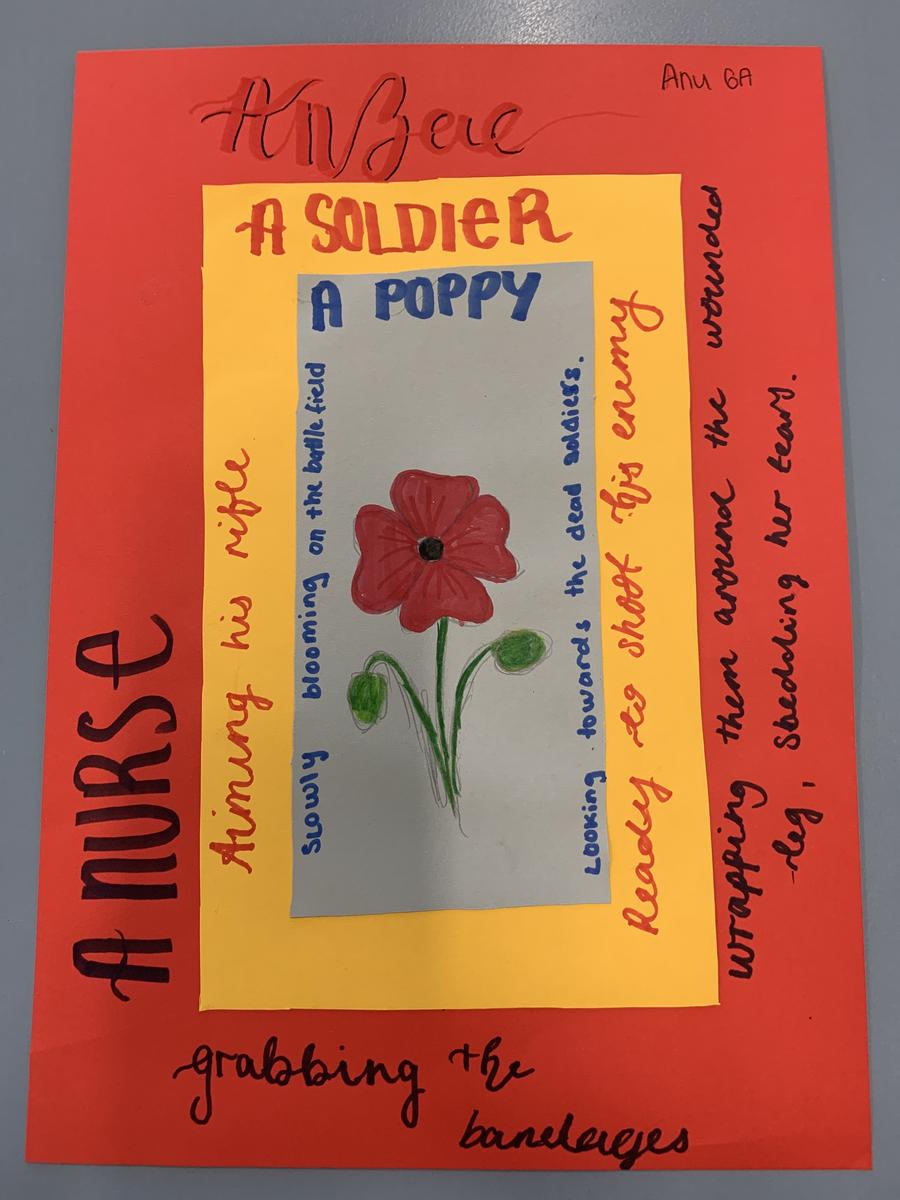 Anu 6A
AnZac
A SOLDIER
A POPPY
Slowly blooming on the battle field
Looking towards the dead soldiers.
Aiming his rifle
Ready to shoot his enemy
A NURSE
grabbing the
bandages
wrapping them around the wounded
-leg, shedding her tears.